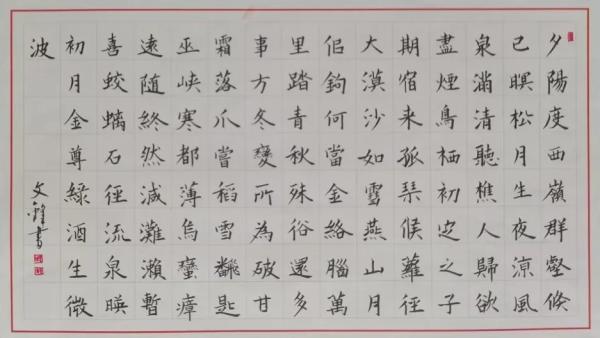 夕陽度西嶺群壑倐
已暝松月生夜涼風
泉滿清聽樵人歸欲
盡煙鳥栖初定之子
期宿来孤琹候蘿徑
大漠沙如雪燕山月
佀鉤何當金絡腦萬
里踏青秋殊俗還多
事方冬變所為破甘
霜落爪嘗稻雪翻匙
巫峽寒都薄烏蠻瘴
遠隨終然減灘瀨暫
喜蛟螭石徑流泉暎
初月金尊綠酒生微
波
文書